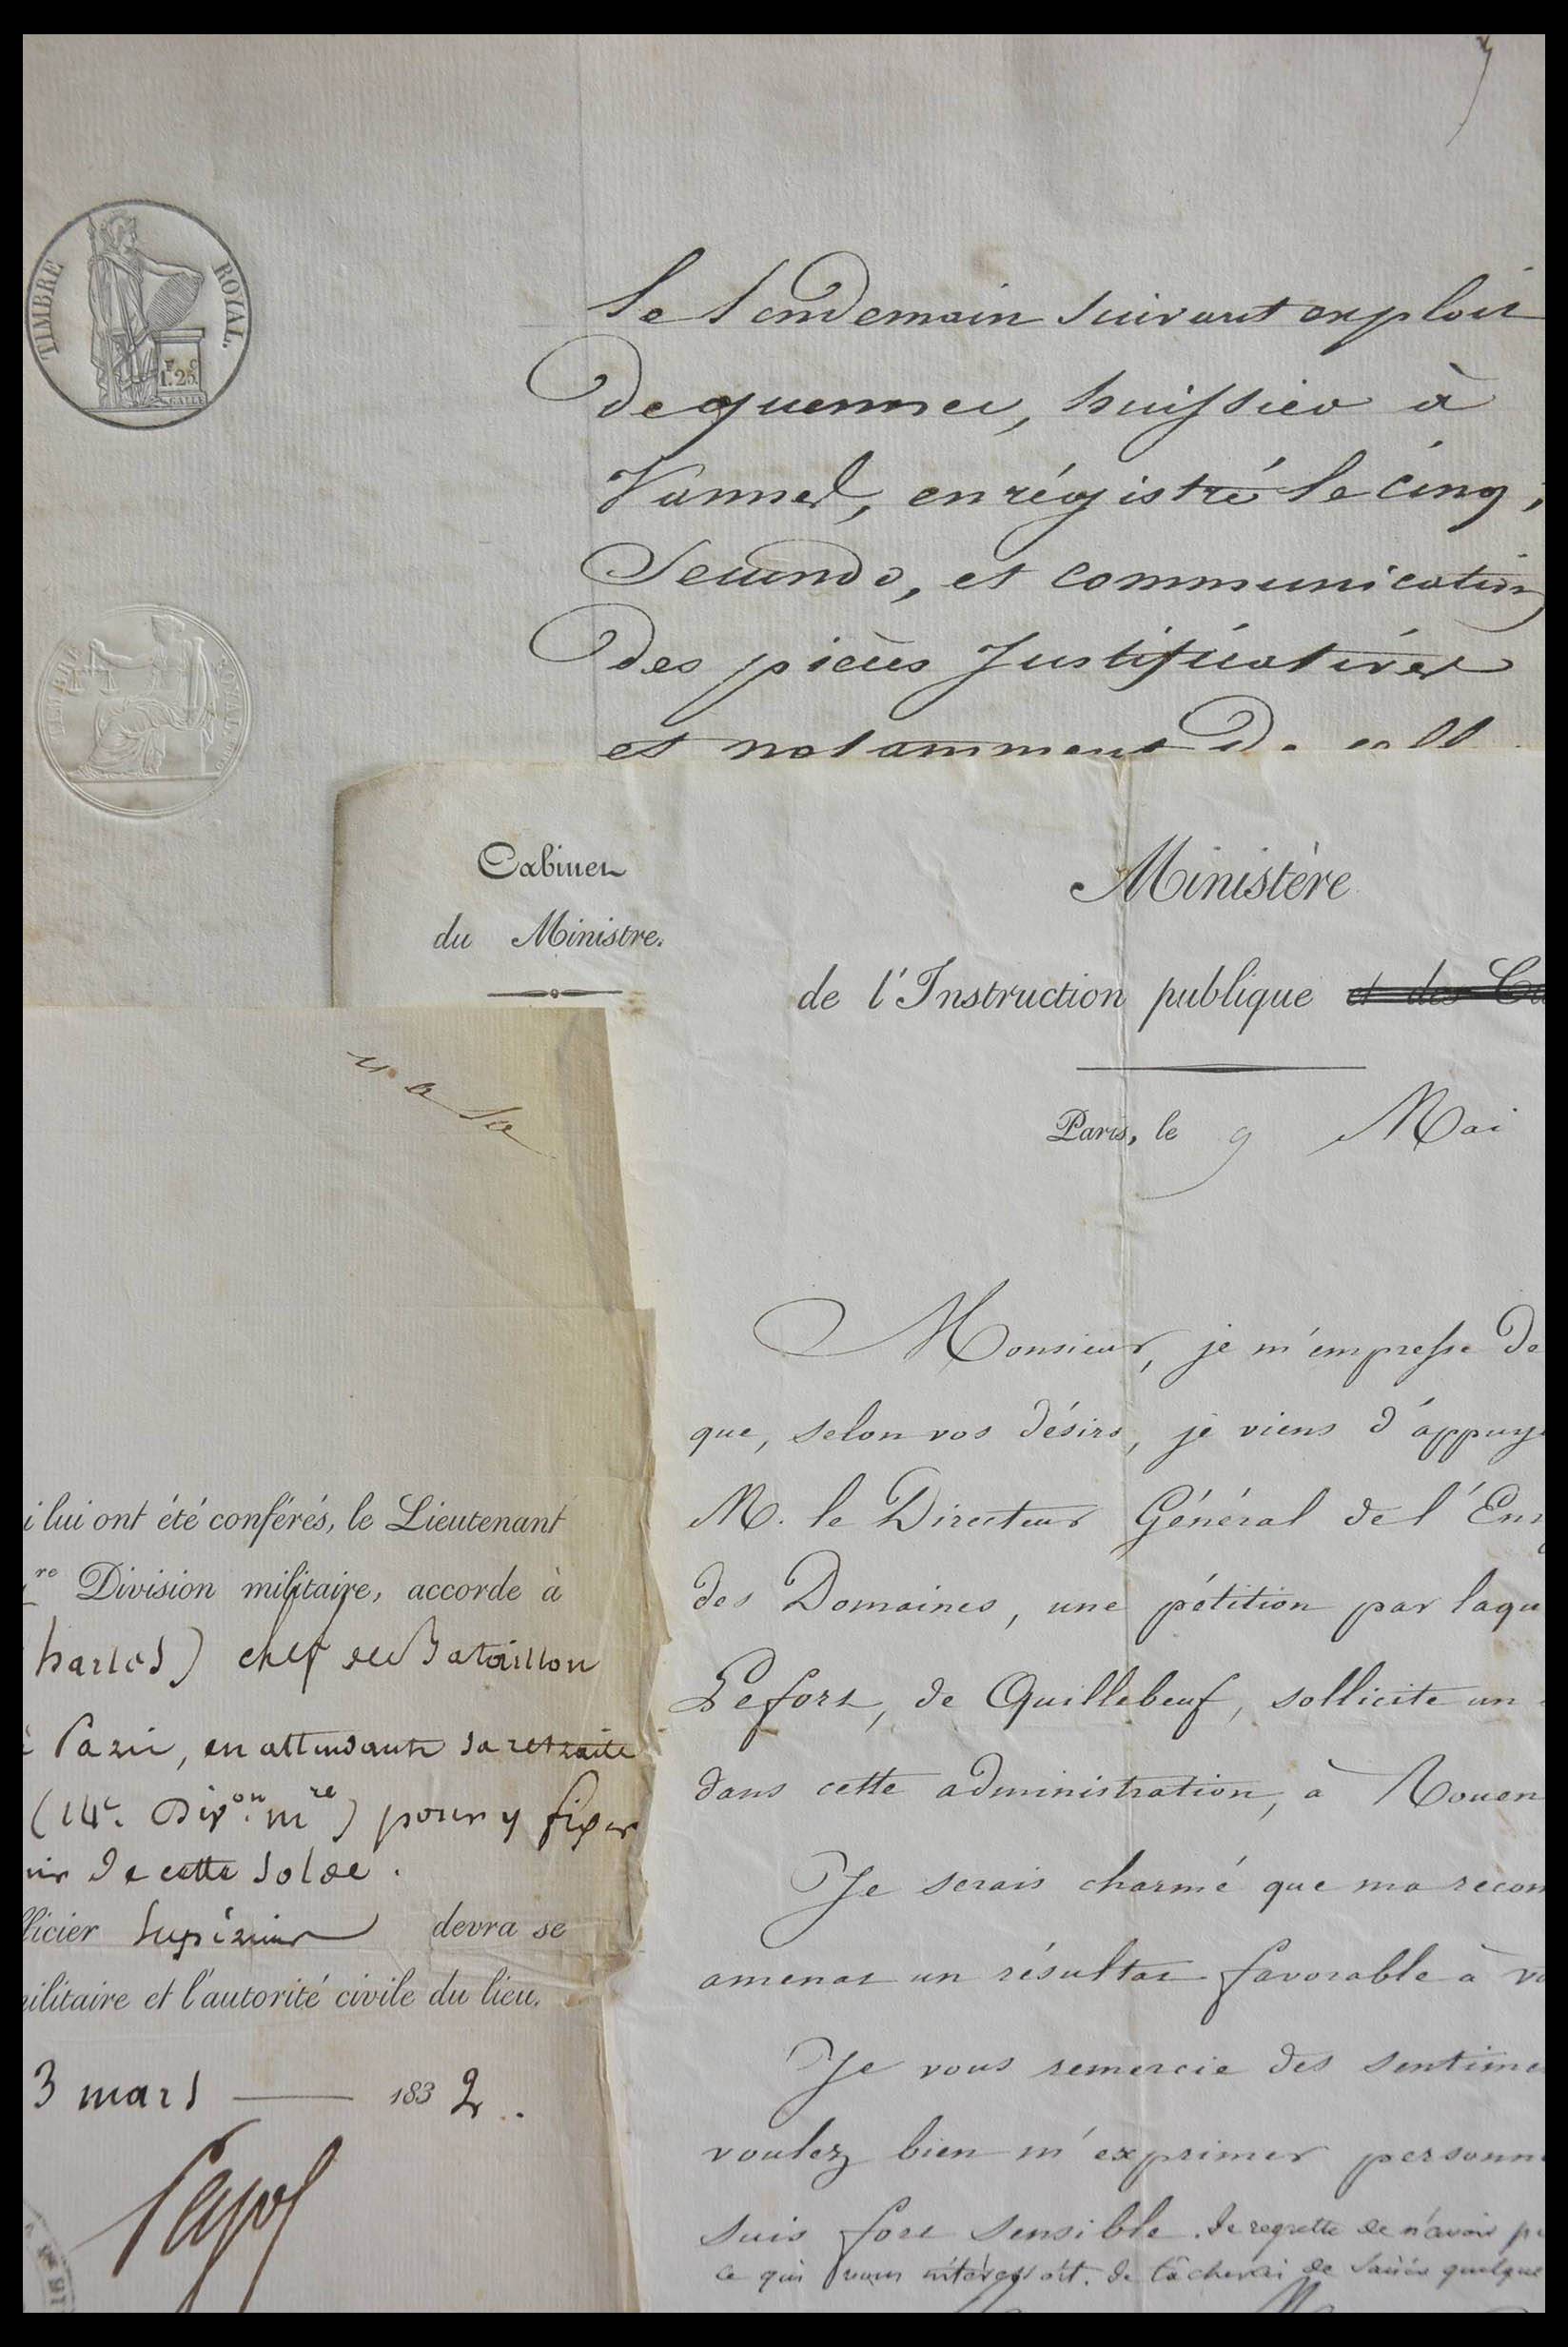 TIMBRE ROYAL.
1. 25.
le lendemain suivant exploit
de quennec, huissier à
Vannes, enrégistré le cinq,
Secundo, et communication
des pièces Justificatives
et notamment de
Cabinet
du Ministre.
Ministère
de l'Instruction publique et des Cu
Paris, le 9 Mai
Monsieur, je m'empresse de
que, selon vos désirs, je viens d'appuye
M. le Directeur Général de l'Enr
des Domaines, une pétition par laqu
Lefort, de Quillebeuf, sollicite un
dans cette administration, à Rouen
Je serais charmé que ma recom
amenat un résultat favorable à vo
Je vous remercie des sentime
voulez bien m'exprimer personn
suis fort sensible. Je regrette de n'avoir pu
ce qui vous intéressoit. Je tâcherai de quelque
i lui ont été conférés, le Lieutenant
re Division militaire, accorde à
harles) chef de Bataillon
à Paris, en attendant sa retraite
(14e. Divon. mre) pour y fixer
uir de cette solde.
ficier Supérieur devra se
ilitaire et l'autorité civile du lieu.
3 mars 1832.
Pajol